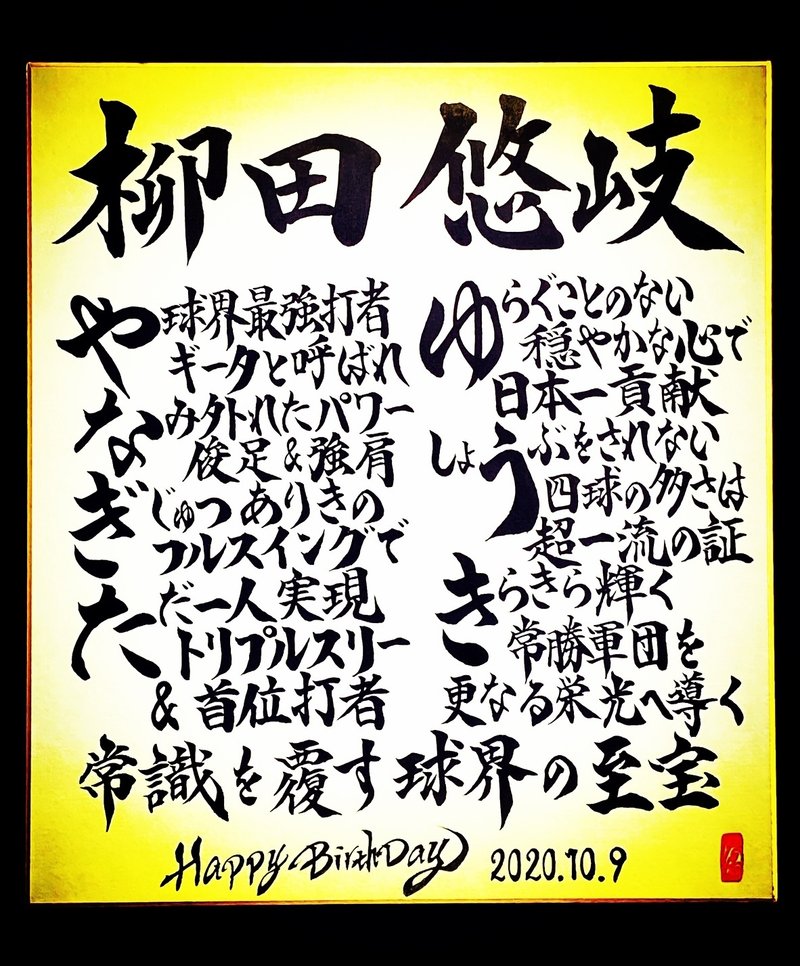 柳田悠岐
や球界最強打者
ギータと呼ばれ
なみ外れたパワー
俊足&強肩
ぎじゅつありきの
フルスイングで
ただ一人実現
トリプルスリー
&首位打者
ゆらぐことのない
穏やかな心で
日本一貢献
しょうぶをされない
四球の多さは
超一流の証
きらきら輝く
常勝軍団を
更なる栄光へ導く
常識を覆す球界の至宝
Happy BirthDay 2020.10.9